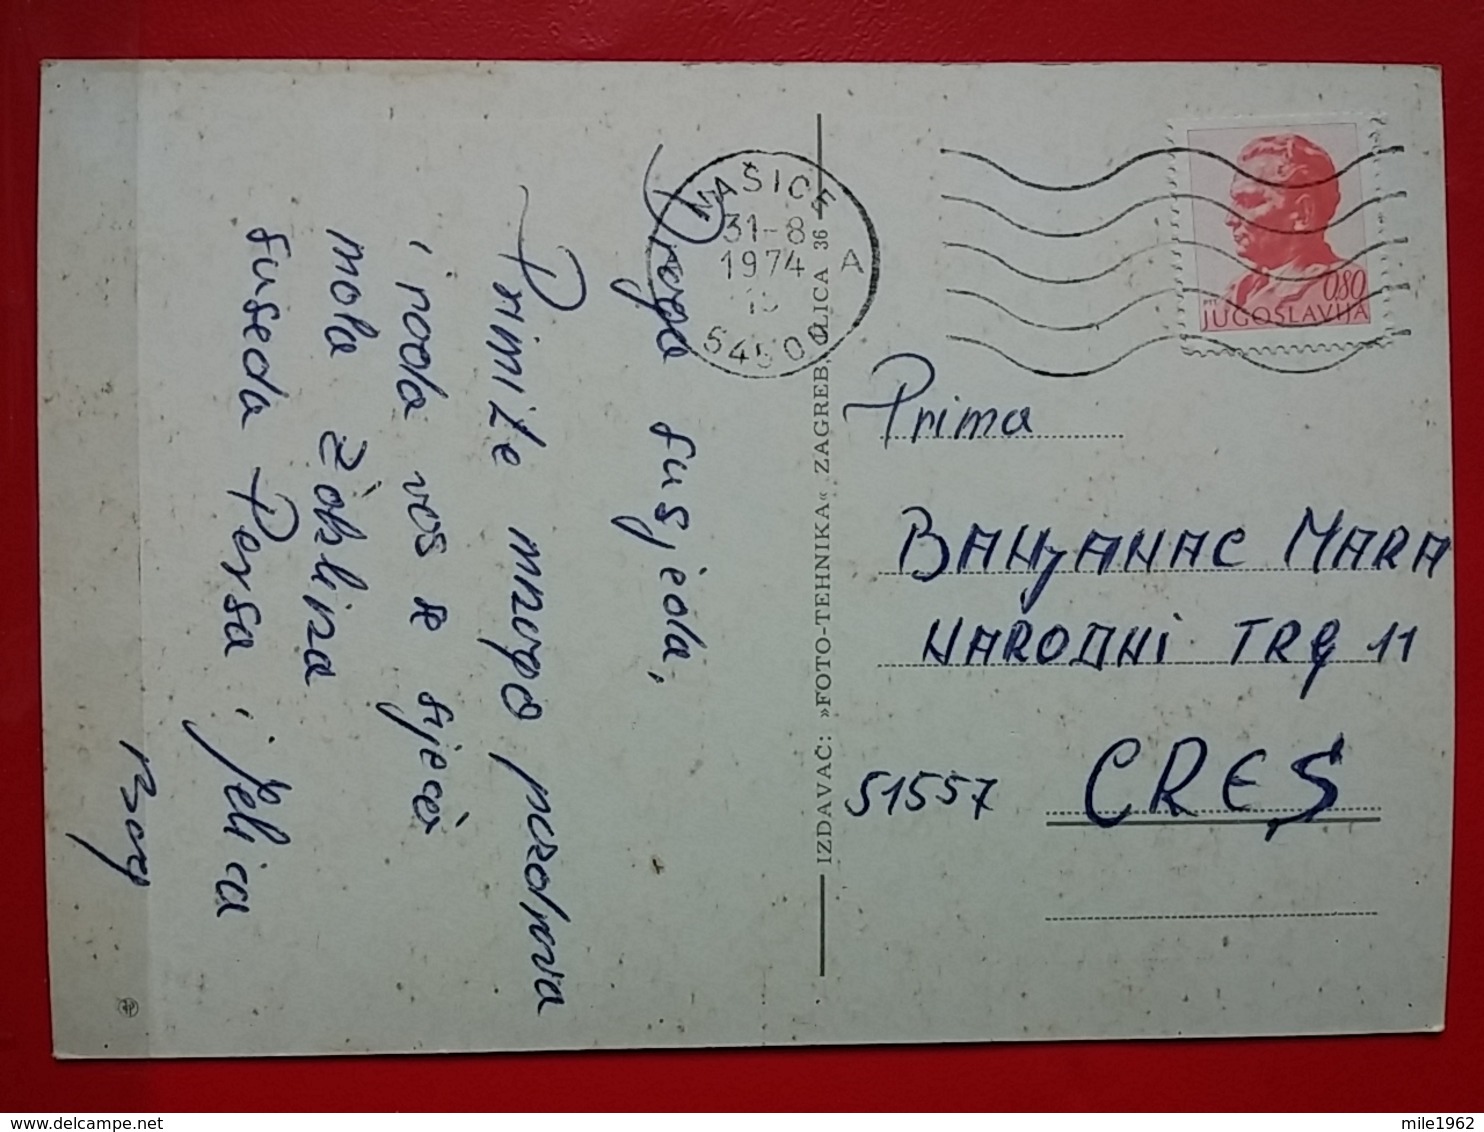 Draga susjeda,
Primite mnogo pozdrava
i rado vas se sjeća
mala
suseda i Jelica
NAŠICE
31-8
1974
A
54500
IZDAVAČ: »FOTO-TEHNIKA« ZAGREB, ILICA 36
0,80
JUGOSLAVIJA
Prima
BANJANAC MARA
NARODNI TRG 11
51557 CRES
mile1962